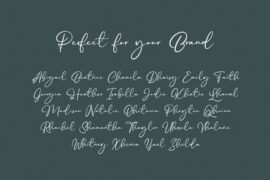 Perfect for your Brand
Abigail Beatrice Chamila Dhaisy Emily Faith
Georgia Heather Isabella Jodie Khatie Lhanal
Madison Natalie Oktavia Phaylin Qheina
Rhachel Shamantha Thaylor Ursula Vhalerie
Whitney Xhenia Yael Zhelda